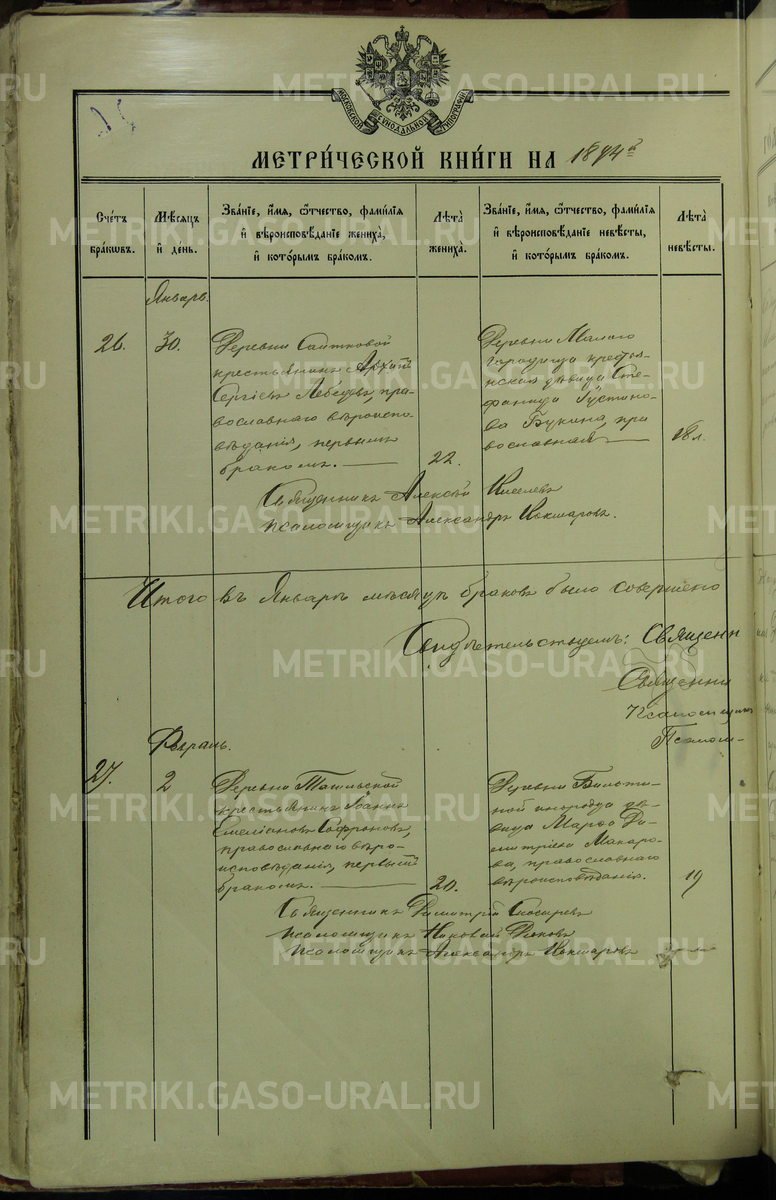 МОСКОВСКОЙ СѴНОДАЛЬНОЙ ТИПОГРАФІИ
МЕТРИ́ЧЕСКОЙ КНИ́ГИ НА 1894й
Сче́тъ бра́кѡвъ.
Мѣ́сяцъ и҆ де́нь.
Зва́нїе, и҆́мѧ, ѻ҆́тчество, фамѝлїѧ и҆ вѣроисповѣ́данїе жениха̀, и҆ кото́рымъ бра́комъ.
Лѣта̀ жениха̀.
Зва́нїе, и҆́мѧ, ѻ҆́тчество, фамѝлїѧ и҆ вѣроисповѣ́данїе невѣ́сты, и҆ кото́рымъ бра́комъ.
Лѣта̀ невѣ́сты.
Январь.
26. 30.
Деревни Саитковой
крестьянинъ Архипъ
Сергіевъ Лебедевъ, пра-
вославнаго вѣроиспо-
вѣданія, первымъ
бракомъ.
22.
Деревни Малаго
городища крестья-
нская дѣвица Сте-
фанида Іустино-
ва Букина, пра
вославная
18 л.
Священникъ Алексѣй Киселевъ
Псаломщикъ Александръ Кокшаровъ.
Итого въ Январѣ мѣсяцѣ браковъ было совершено
Свидѣтельствуемъ: Священн
Священни
Псаломщикъ
Псалом-
Февраль.
27. 2
Деревни
крестьянинъ Іоаннъ
Емеліановъ Софроновъ,
православнаго вѣро-
исповѣданія, первымъ
бракомъ.
20.
Деревни
ной инородца дѣ-
вица Марѳа Ди-
митріева Макаро-
ва, православнаго
вѣроисповѣданія.
19
Священникъ Димитрій
Псаломщикъ Николай
Псаломщикъ Александръ Кокшаровъ
METRIKI.GASO-URAL.RU